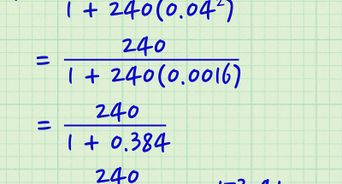 1 + 240(0.04²)
= 240
1 + 240(0.0016)
= 240
1 + 0.384
240